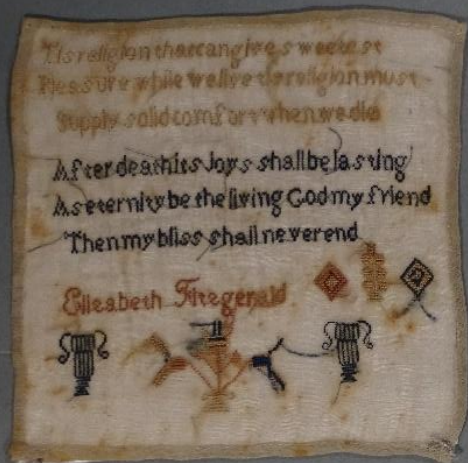 Tis religion that can give sweetest
Pleasure while we live tis religion must
Supply solid comfort when we die
After death its Joys shall be lasting
As eternity be the living God my friend
Then my bliss shall never end
Elizabeth Fitzgerald